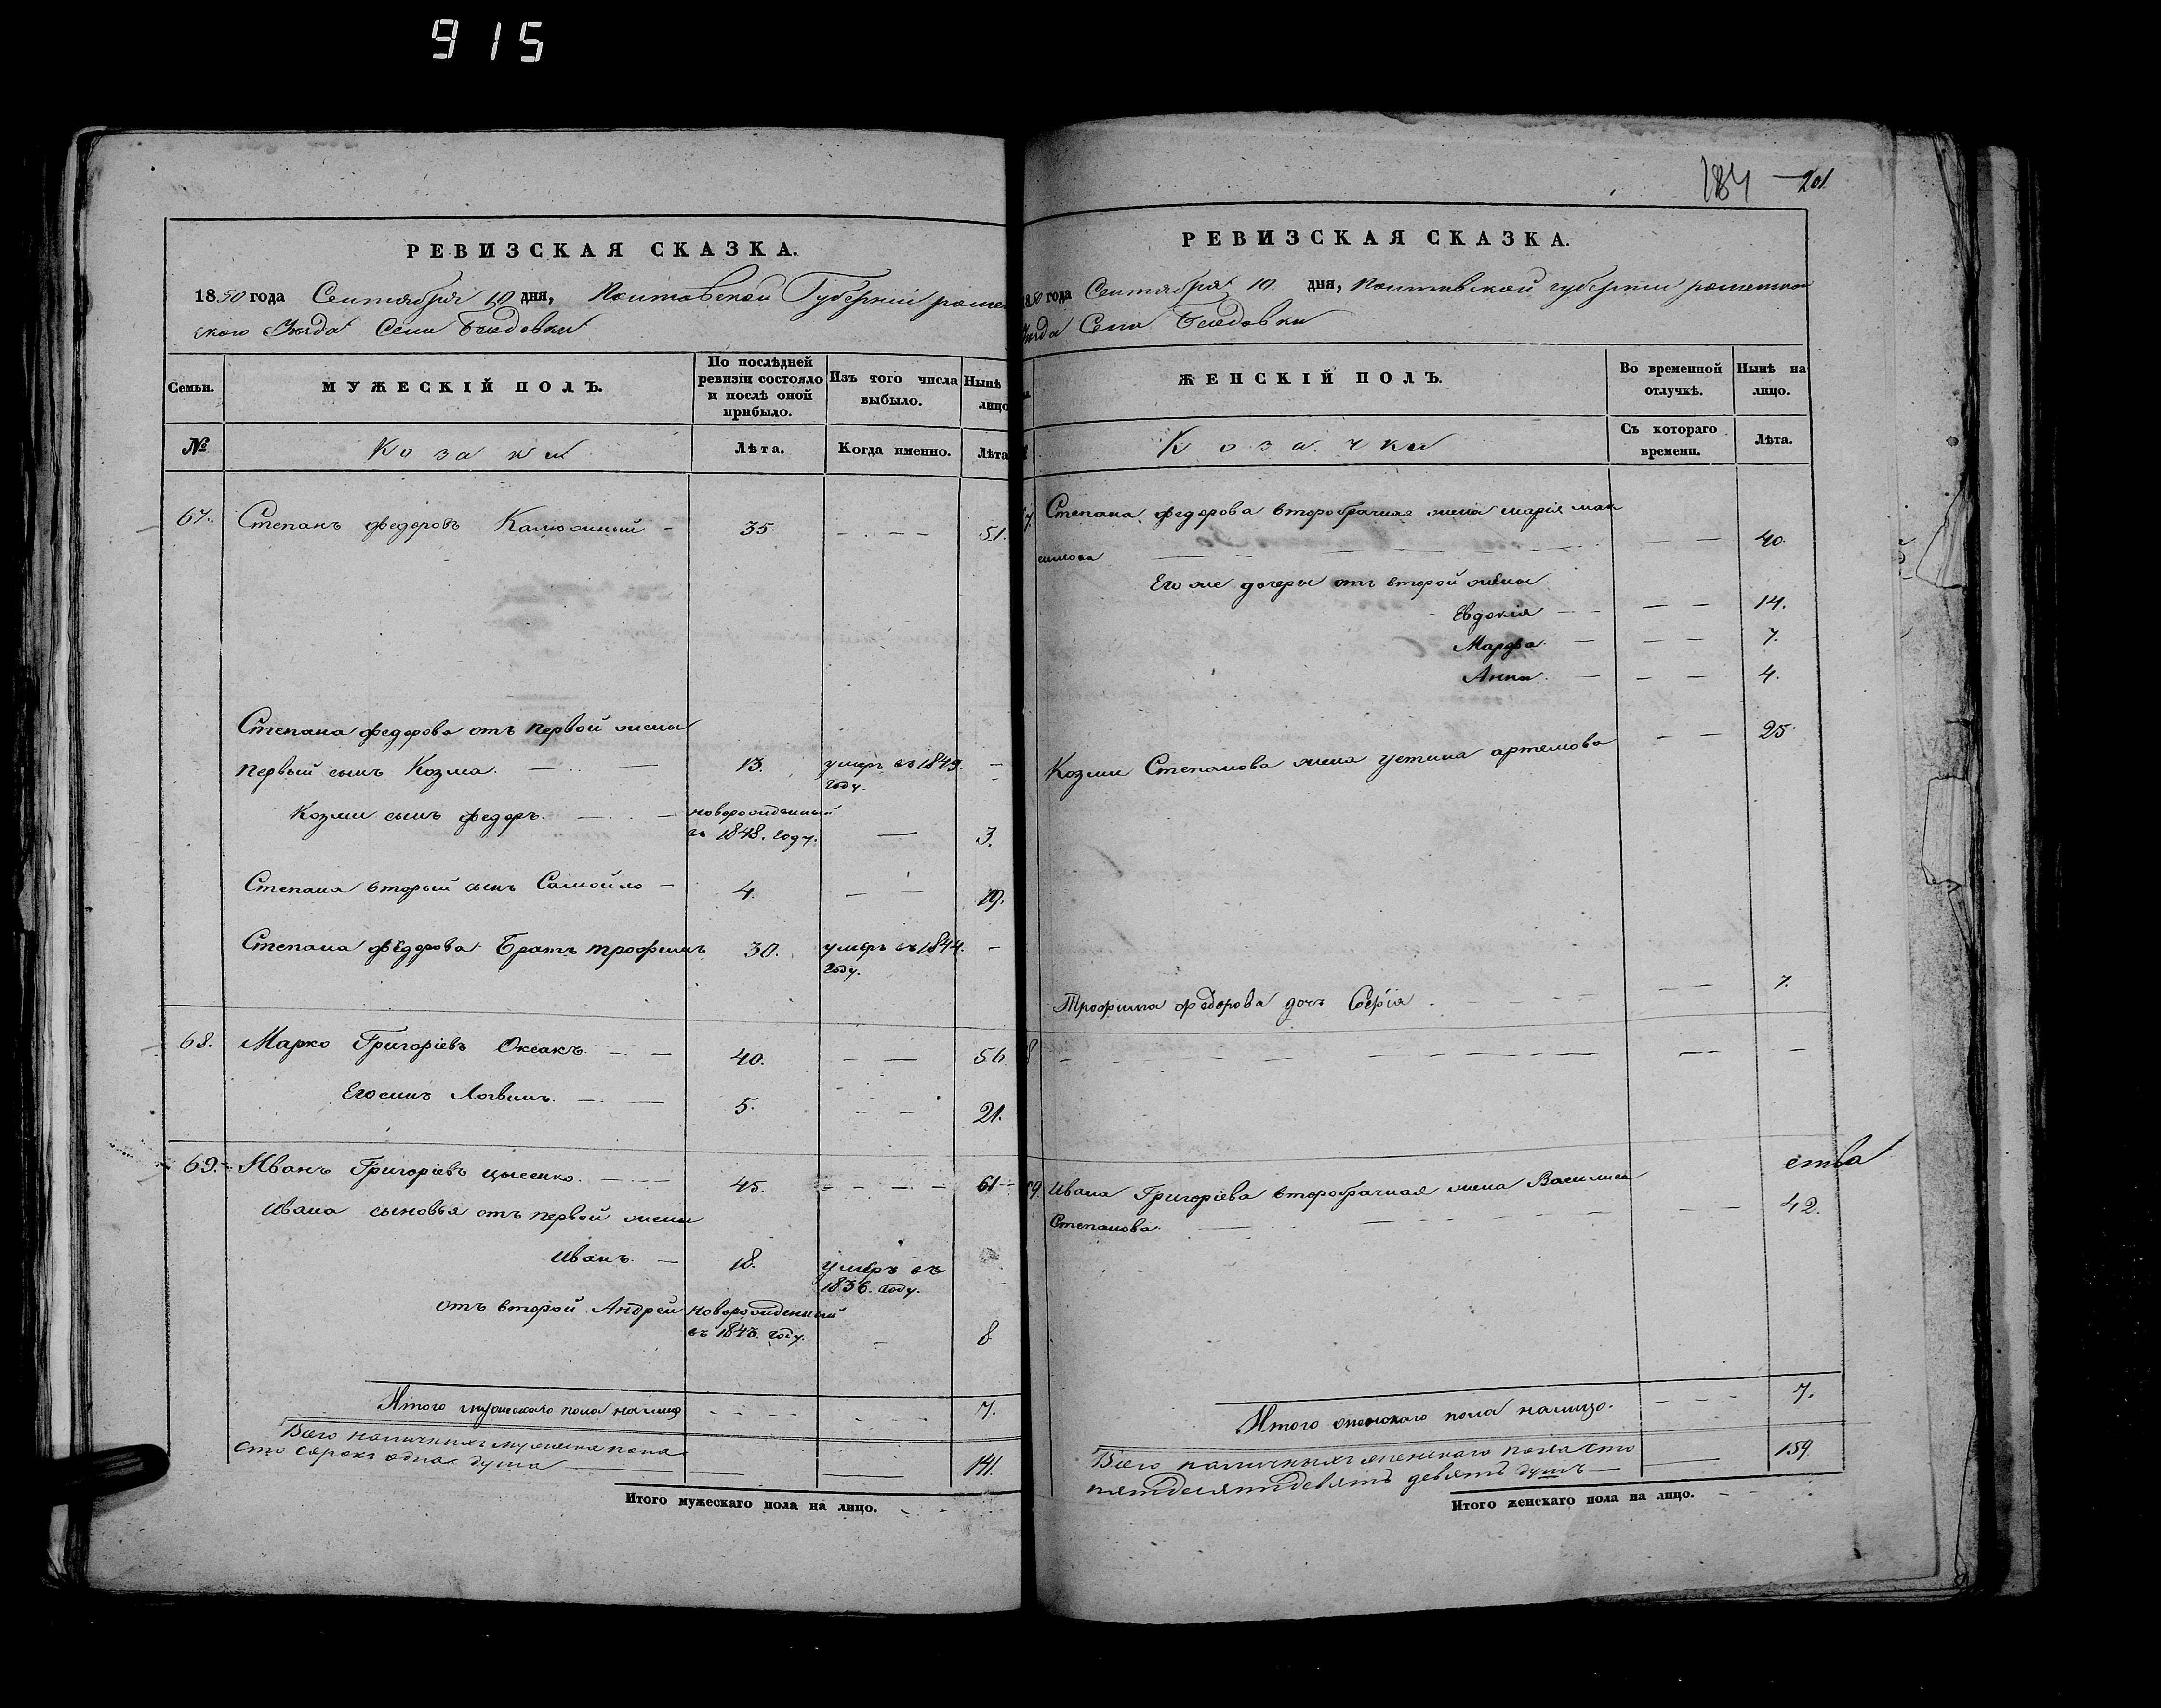 915
РЕВИЗСКАЯ СКАЗКА.
1850 года Сентября 10 дня, Полтавской Губерніи роме
ского Уезда Села Беседовки
Семьи.
МУЖЕСКІЙ ПОЛЪ.
По послѣдней ревизіи состояло и послѣ оной прибыло.
Изъ того числа выбыло.
Нынѣ лицо
№
Козаки
Лѣта.
Когда именно.
Лѣта
67. Степанъ федоровъ Калюжный - 35. - - - - 51.
Степана федорова отъ первой жены
первый сынъ Козма. 13. умеръ въ 1849. году. -
Козми сынъ федоръ. новорожденный въ 1848. году. — 3.
Степана вторый сынъ Самойло - 4. - - 19.
Степана федорова Братъ трофимъ 30. умеръ въ 1844. году. -
68. Марко Григоріевъ Оксакъ. 40. - — 56.
Его сынъ Логвинъ. 5. - - 21.
69. Иванъ Григоріевъ цысенко. 45. - - - - 61
Ивана сыновья отъ первой жены
Иванъ. - 18. умеръ въ 1836. году.
отъ второй Андрей новорожденный въ 1843. году. - 8
Итого мужескаго пола налицо 7.
Всего наличныхъ мужеска пола
сто сорокъ одна душа 141.
Итого мужескаго пола на лицо.
184 201
РЕВИЗСКАЯ СКАЗКА.
1850 года Сентября 10. дня, Полтавской губерніи
Уезда Села Беседовки
ЖЕНСКІЙ ПОЛЪ.
Во временной отлучкѣ.
Нынѣ на лицо.
Козачки
Съ котораго времени.
Лѣта.
7. Степана федорова второбрачная жена марія мак
симова - - 40.
Его же дочеры отъ второй жены
Евдокія - - 14.
Марфа - - 7.
Анна - - 4.
Козми Степанова жена устина артемова - - 25.
Трофима федорова дочь Софія - - 7.
8 - - - - - - - -
ства
69. Ивана Григоріева второбрачная жена Василиса
Степанова. - - 42.
Итого женскаго пола налицо. - - - 7.
Всего наличныхъ женскаго пола сто
пятдесятдевять девять душъ — 159
Итого женскаго пола на лицо.